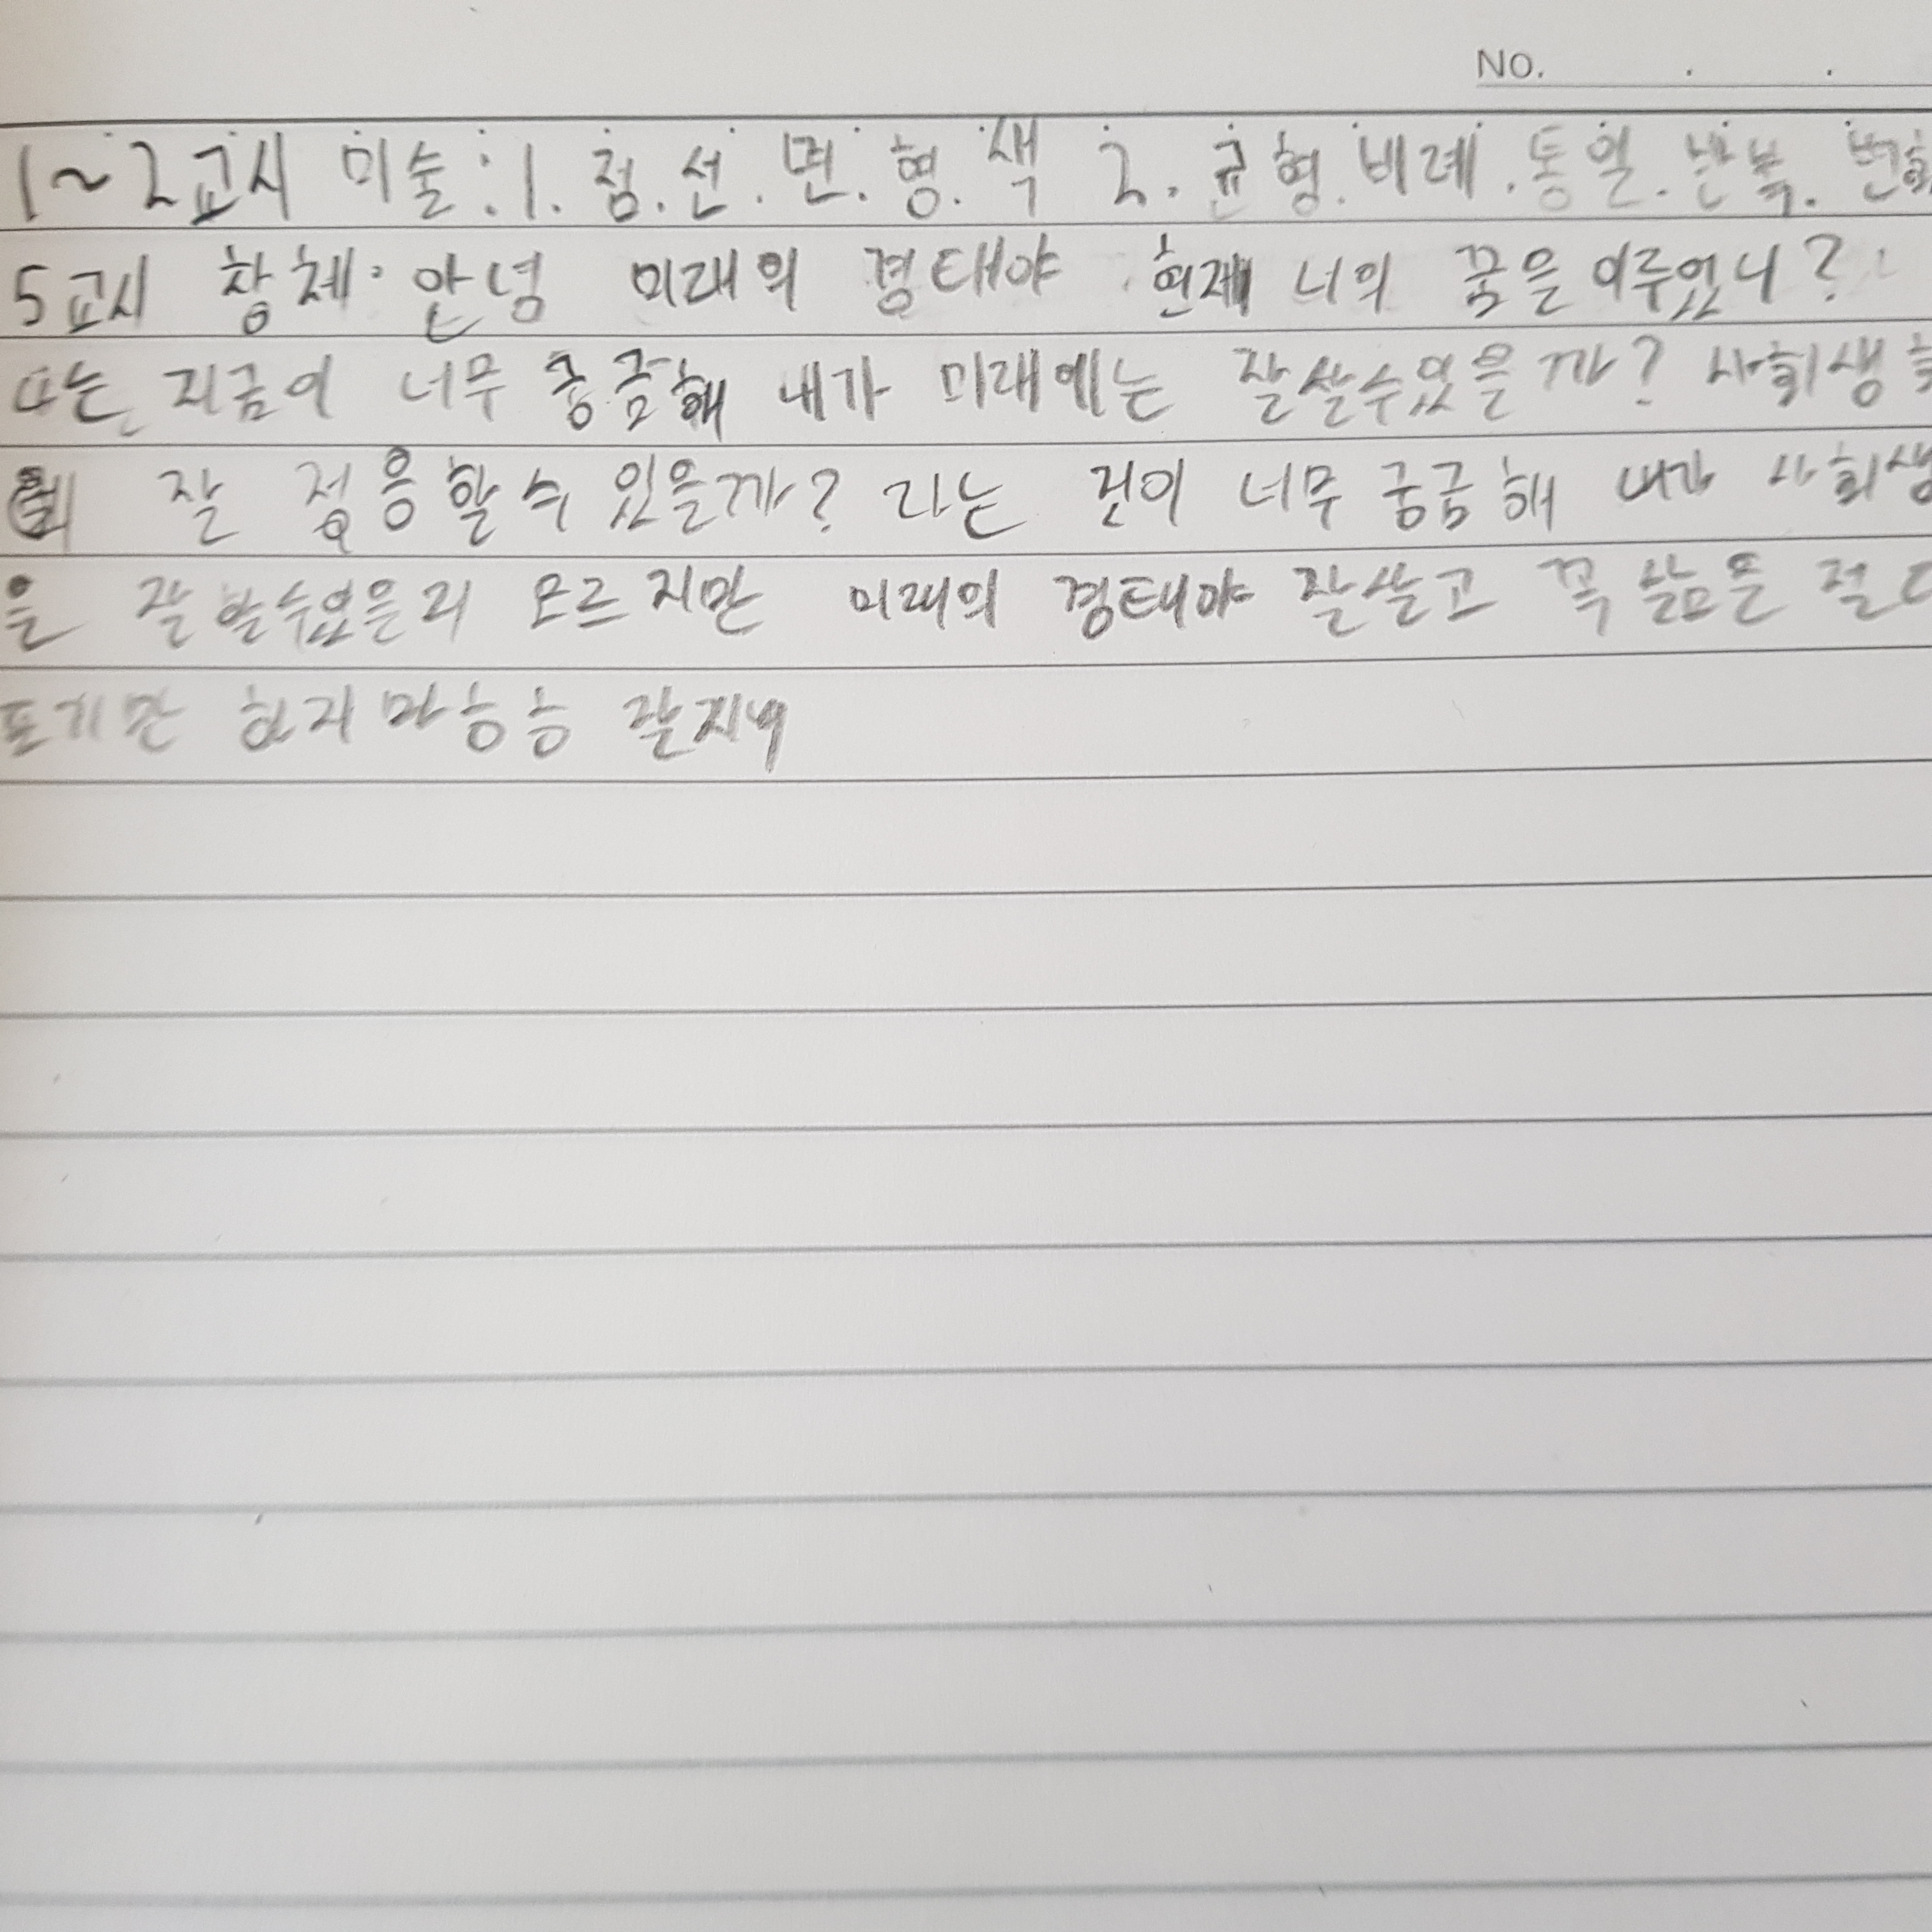 NO. . .
1~2교시 미술:1. 점.선.면.형.색 2. 균형.비례.통일.반복.변화
5교시 창체. 안녕 미래의 경태야 현재 너의 꿈을 이루었니?
나는 지금이 너무 궁금해 내가 미래에는 잘살수있을까? 사회생
잘 적응할수 있을까? 라는 것이 너무 궁금해 내가 사회생
을 잘할수있을리 모르지만 미래의 경태야 잘살고 꼭 삶은 절대
포기만 하지마ㅎㅎ 잘지내